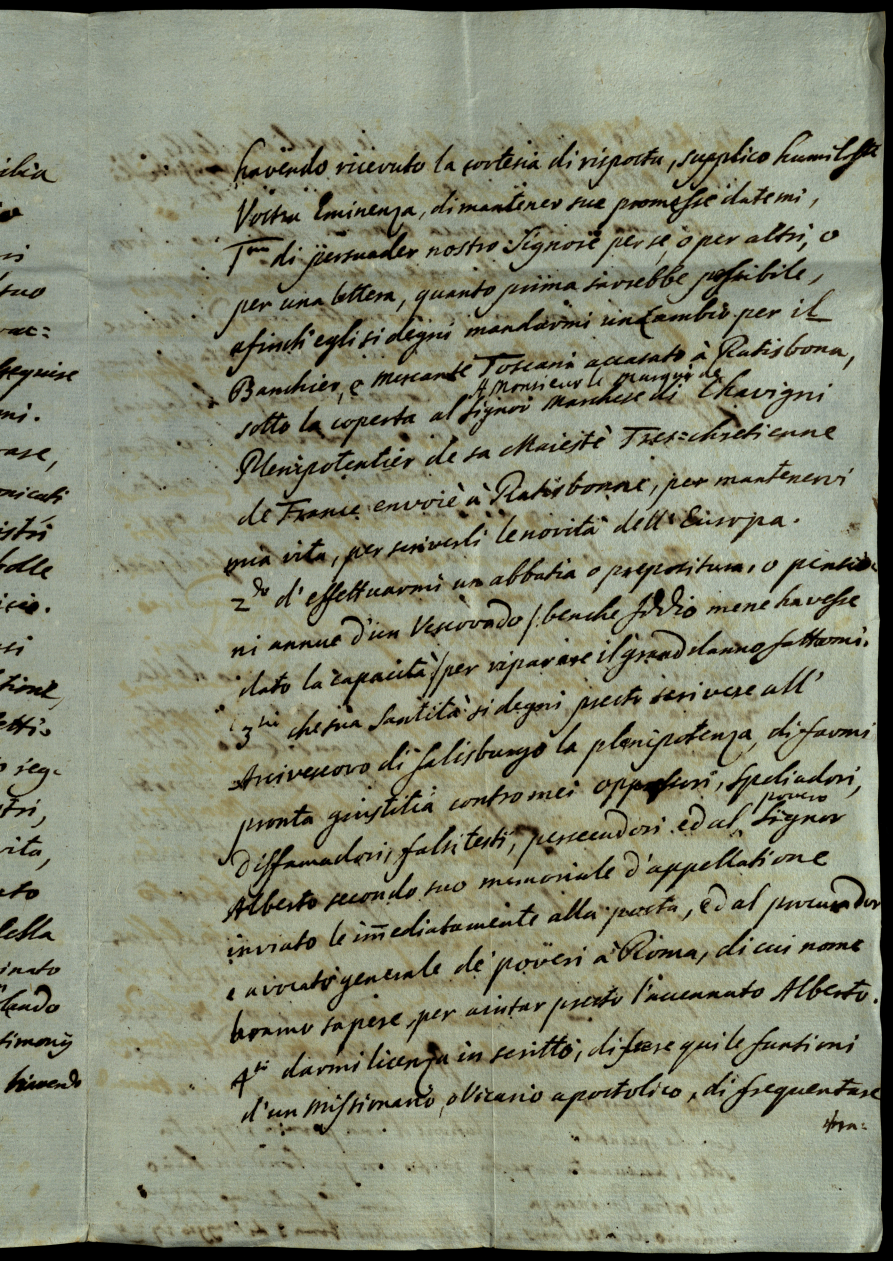 havendo ricevuto la cortesia di risposta, supplico humilss.te
Vostra Eminenza, di mantener sue promesse datemi,
1.mo di persuader nostro Signore per se, o per altri, o
per una lettera, quanto prima sarebbe possibile,
afinch'egli si degni mandarmi un cambio per il
Banchier, e mercante Toscani accasato à Ratisbona,
A Monsieur le Marquis de
sotto la coperta al Signor Marchese di Chavigni
Plenipotentier de sa Maiestè Tres=chretienne
de France envoiè à Ratisbonne, per mantenervi
mia vita, per scriverli le novità dell' Europa.
2.do d'effettuarmi un abbatia o prepositura, o pensio=
ni annue d'un Vescovado /: benche Iddio mene havesse
dato la capacità :/ per riparare il grand danno fattomi.
3.tio che sua Santità si degni presto scrivere all'
Arcivescovo di Salisburgo la plenipotenza, di farmi
pronta giustitia contro miei oppressori, spoliadori,
povero
diffamadori, falsi testi, persecudori ed al Signor
Alberto secondo suo memoriale d'appellatione
inviato le im̅ediatamente alla posta, ed al procurador
e avocato generale de' poveri à Roma, di cui nome
bramo sapere, per aiutar presto l'accennato Alberto.
4.to darmi licenza in scritto, di fare qui le funtioni
d'un Missionario, o Vicario apostolico, di frequentare
ilia
suo
hequise
mi.
nicati
istri
bolle
icio.
tione,
o seg-
tri,
vita,
ato
della
inato
timonij
havendo